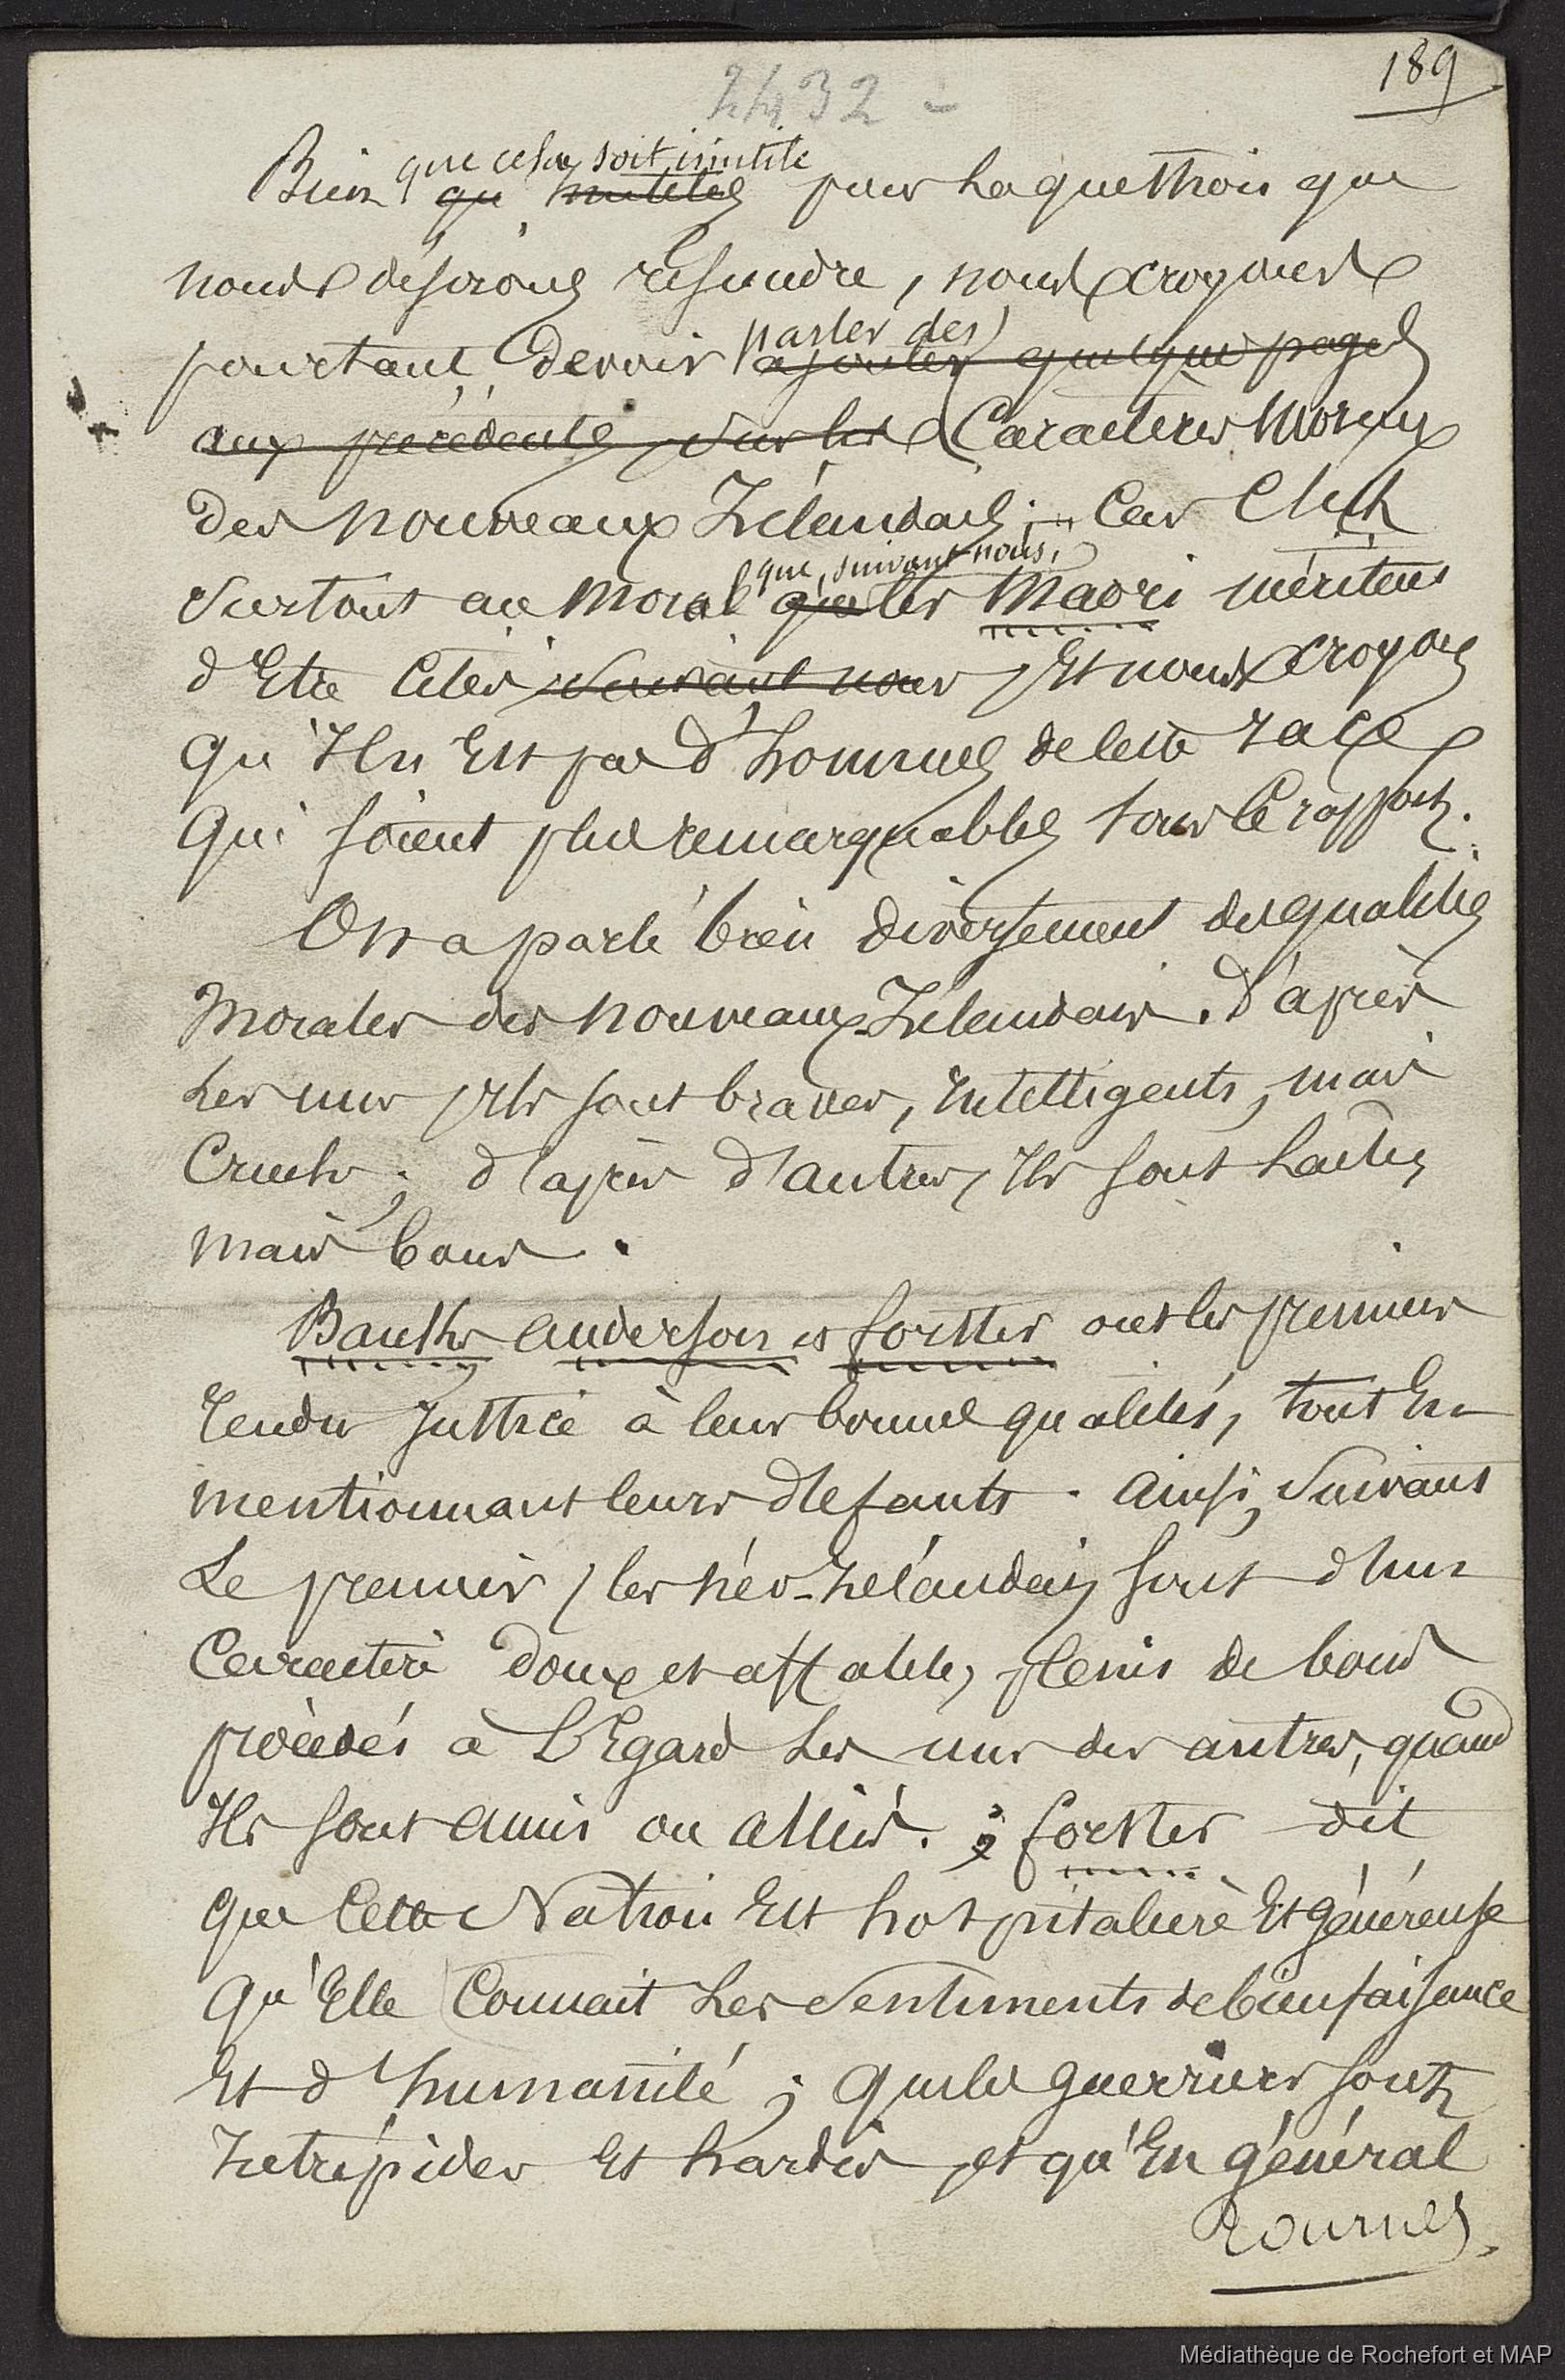 189
2432 -
que cela soit inutile
Bien ~~qu'inutiles~~ pour la question que
nous désirons résoudre, nous croyons
parler des
pourtant devoir ~~ajouter quelque pages~~
~~aux précédentes, sur les~~ Caractères Moraux
des nouveaux Zélandais; Car C'est
que, suivant nous,
surtout au moral ~~que~~ les Maori méritent
d'Etre Cités ~~suivant nous~~, Et nous croyons
qu'Il n'Est pas d'hommes de leur race
qui soient plus remarquables sous ce rapport.
On a parlé bien diversement des qualités
Morales des nouveaux-Zélandais. D'après
les uns, Ils sont braves, Intelligents, mais
Cruels; d'après d'autres, Ils sont lâches
mais bons.
Banks, Anderson et Forster ont les premiers
rendu Justice à leurs bonnes qualités, tout En
mentionnant leurs défauts. Ainsi, suivant
Le premier, les néo-zélandais sont d'un
Caractère doux et affable, pleins de bons
procédés à L'Egard les uns des autres, quand
Ils sont amis ou alliés. ; Forster dit
que Cette Nation Est hospitalière Et généreuse
qu'Elle Connait les sentiments de bienfaisance
Et d'humanité; que les guerriers sont
Intrépides Et hardis, et qu'En général
Tournez.
Médiathèque de Rochefort et MAP